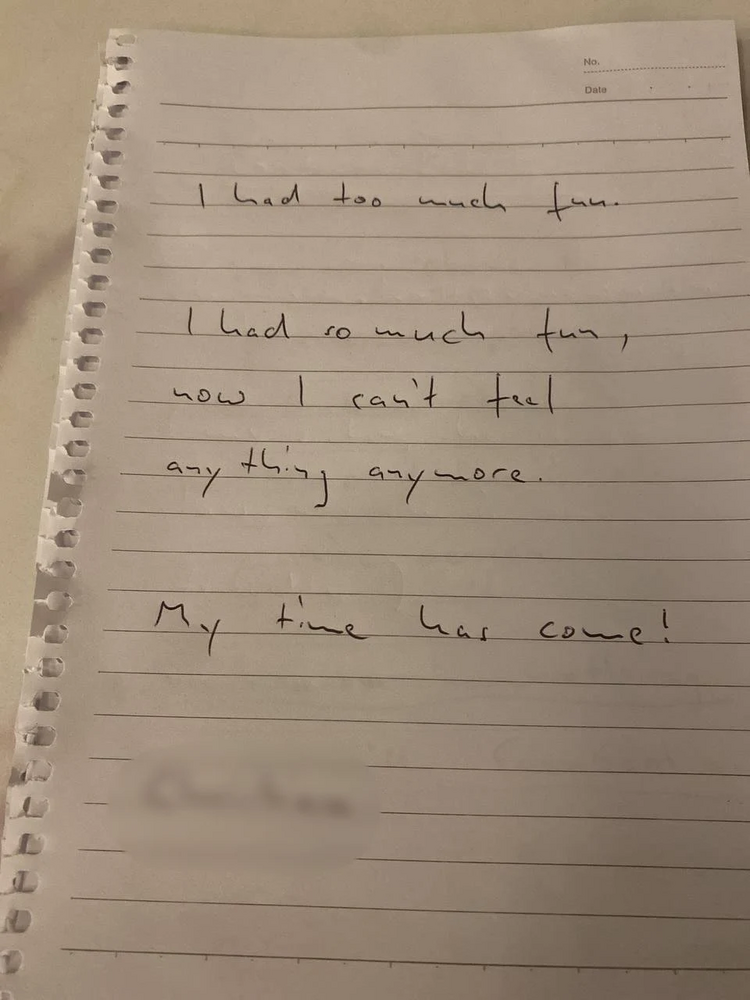 No.
Date
I had too much fun.
I had so much fun,
now I can't feel
anything anymore.
My time has come!